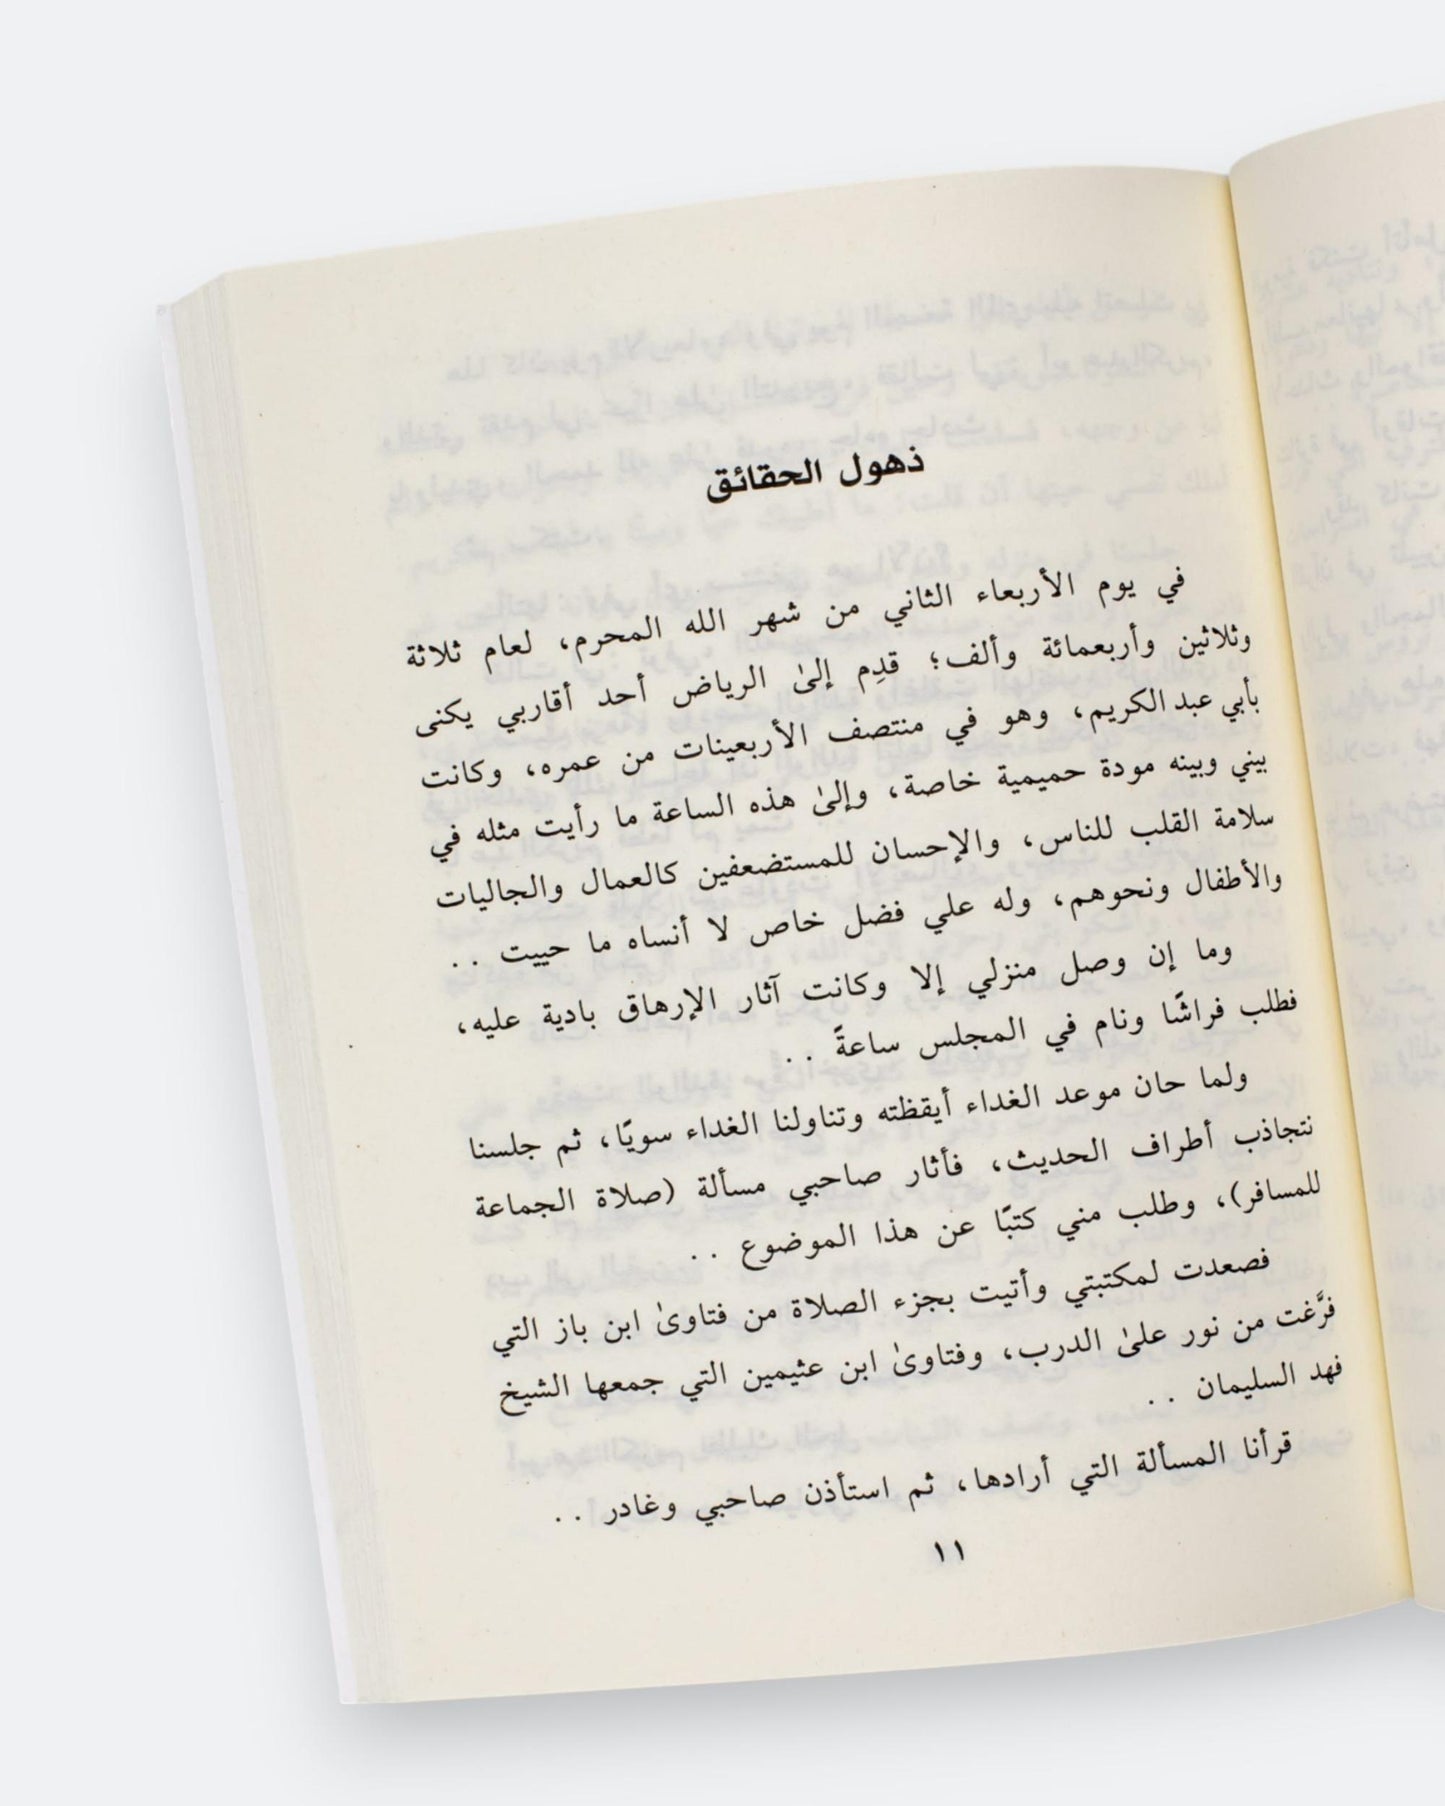 ذهول الحقائق
في يوم الأربعاء الثاني من شهر الله المحرم، لعام ثلاثة
وثلاثين وأربعمائة وألف؛ قدِم إلىٰ الرياض أحد أقاربي يكنى
بأبي عبد الكريم، وهو في منتصف الأربعينات من عمره، وكانت
بيني وبينه مودة حميمية خاصة، وإلىٰ هذه الساعة ما رأيت مثله في
سلامة القلب للناس، والإحسان للمستضعفين كالعمال والجاليات
والأطفال ونحوهم، وله علي فضل خاص لا أنساه ما حييت . .
وما إن وصل منزلي إلا وكانت آثار الإرهاق بادية عليه،
فطلب فراشًا ونام في المجلس ساعةً . .
ولما حان موعد الغداء أيقظته وتناولنا الغداء سويًا، ثم جلسنا
نتجاذب أطراف الحديث، فأثار صاحبي مسألة (صلاة الجماعة
للمسافر)، وطلب مني كتبًا عن هذا الموضوع . .
فصعدت لمكتبتي وأتيت بجزء الصلاة من فتاوىٰ ابن باز التي
فرَّغت من نور علىٰ الدرب، وفتاوىٰ ابن عثيمين التي جمعها الشيخ
فهد السليمان . .
قرأنا المسألة التي أرادها، ثم استأذن صاحبي وغادر . .
١١